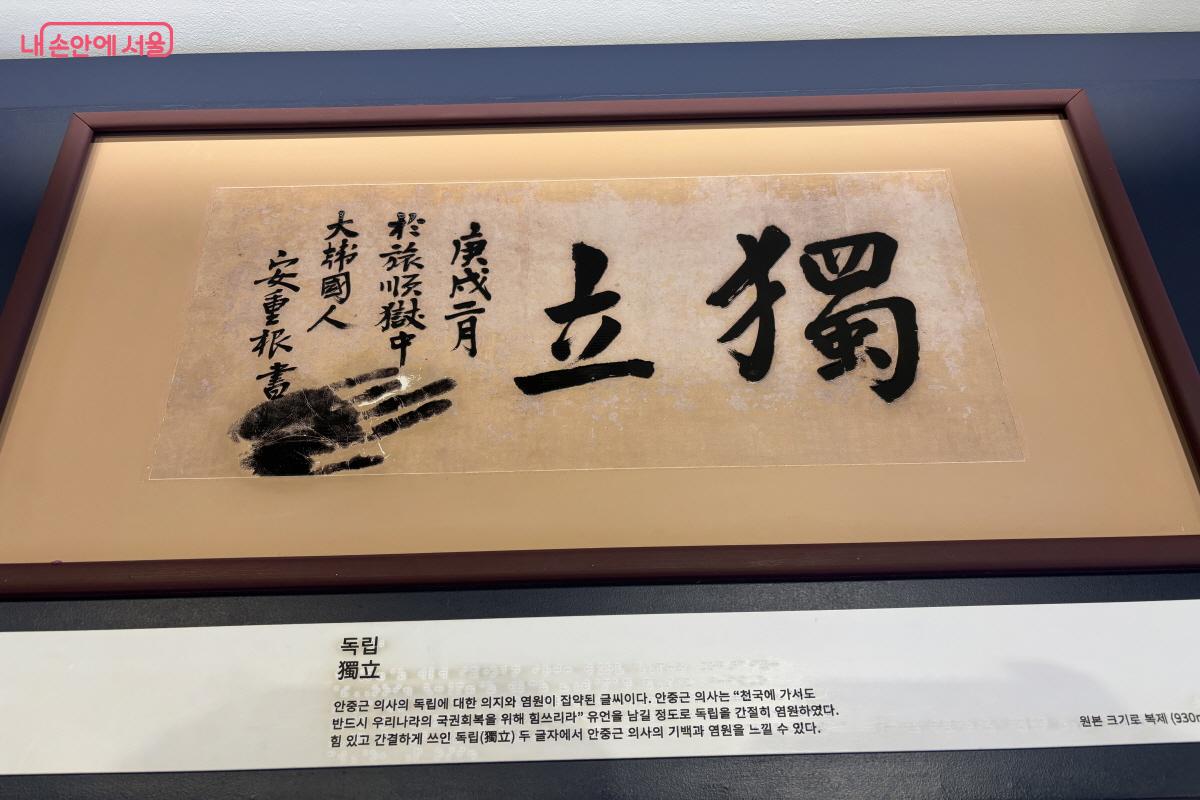 내 손안에 서울
獨立
庚戌二月
於旅順獄中
大韓國人
安重根書
독립
獨立
안중근 의사의 독립에 대한 의지와 염원이 집약된 글씨이다. 안중근 의사는 “천국에 가서도
반드시 우리나라의 국권회복을 위해 힘쓰리라” 유언을 남길 정도로 독립을 간절히 염원하였다.
힘 있고 간결하게 쓰인 독립(獨立) 두 글자에서 안중근 의사의 기백과 염원을 느낄 수 있다.
원본 크기로 복제 (930m